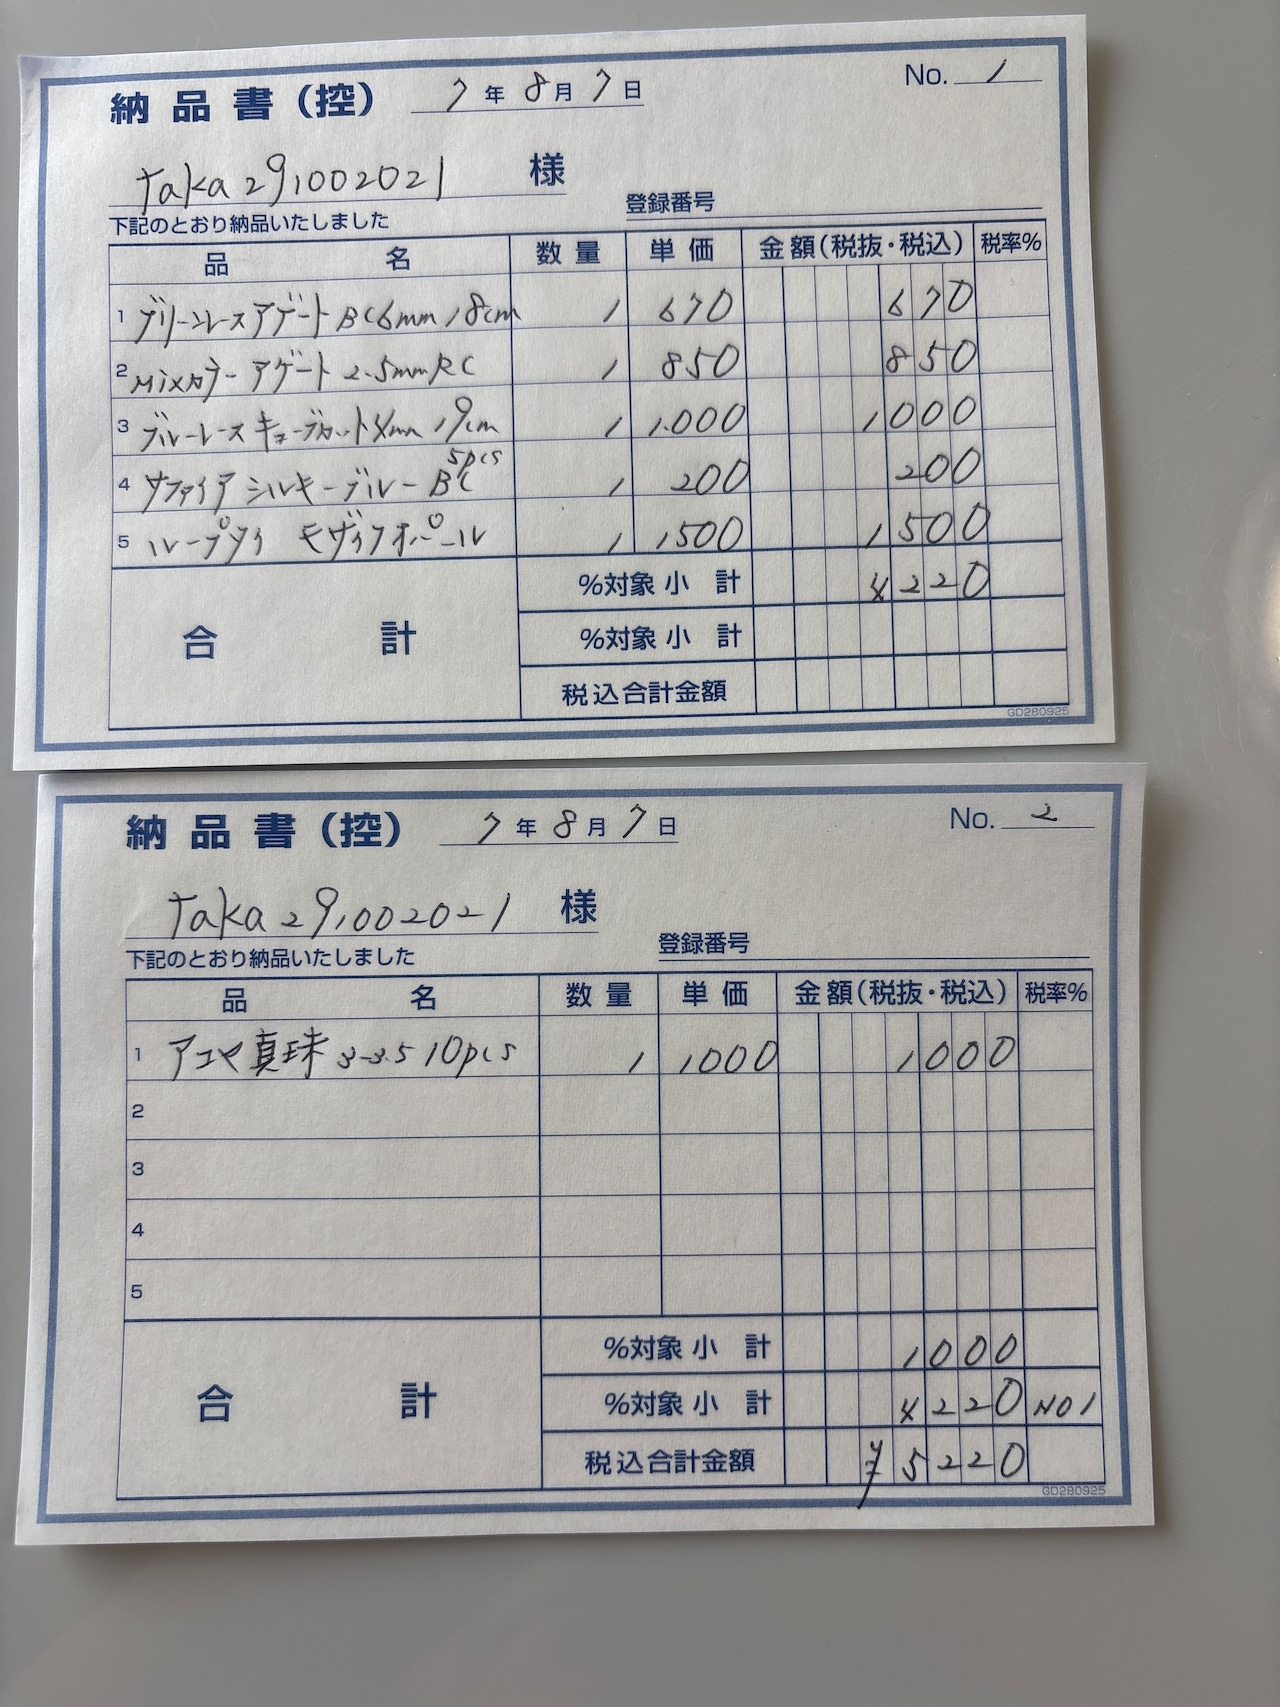 納品書(控) 7年8月7日 No. 1
taka291002021 様
登録番号
下記のとおり納品いたしました
品名 数量 単価 金額(税抜・税込) 税率%
1 グリーンレースアゲート BC6mm 18cm 1 670 670
2 Mixカラー アゲート 2.5mm RC 1 850 850
3 ブルーレース キューブカット4mm 19cm 1 1.000 1000
4 サファイア シルキーブルー BC 5pcs 1 200 200
5 ループタイ モザイクオパール 1 1500 1500
合計
%対象小計 4220
%対象小計
税込合計金額
GD280925
納品書(控) 7年8月7日 No. 2
taka291002021 様
登録番号
下記のとおり納品いたしました
品名 数量 単価 金額(税抜・税込) 税率%
1 アコヤ真珠 3-3.5 10pcs 1 1000 1000
2
3
4
5
合計
%対象小計 1000
%対象小計 4220 NO1
税込合計金額 ¥5220
GD280925